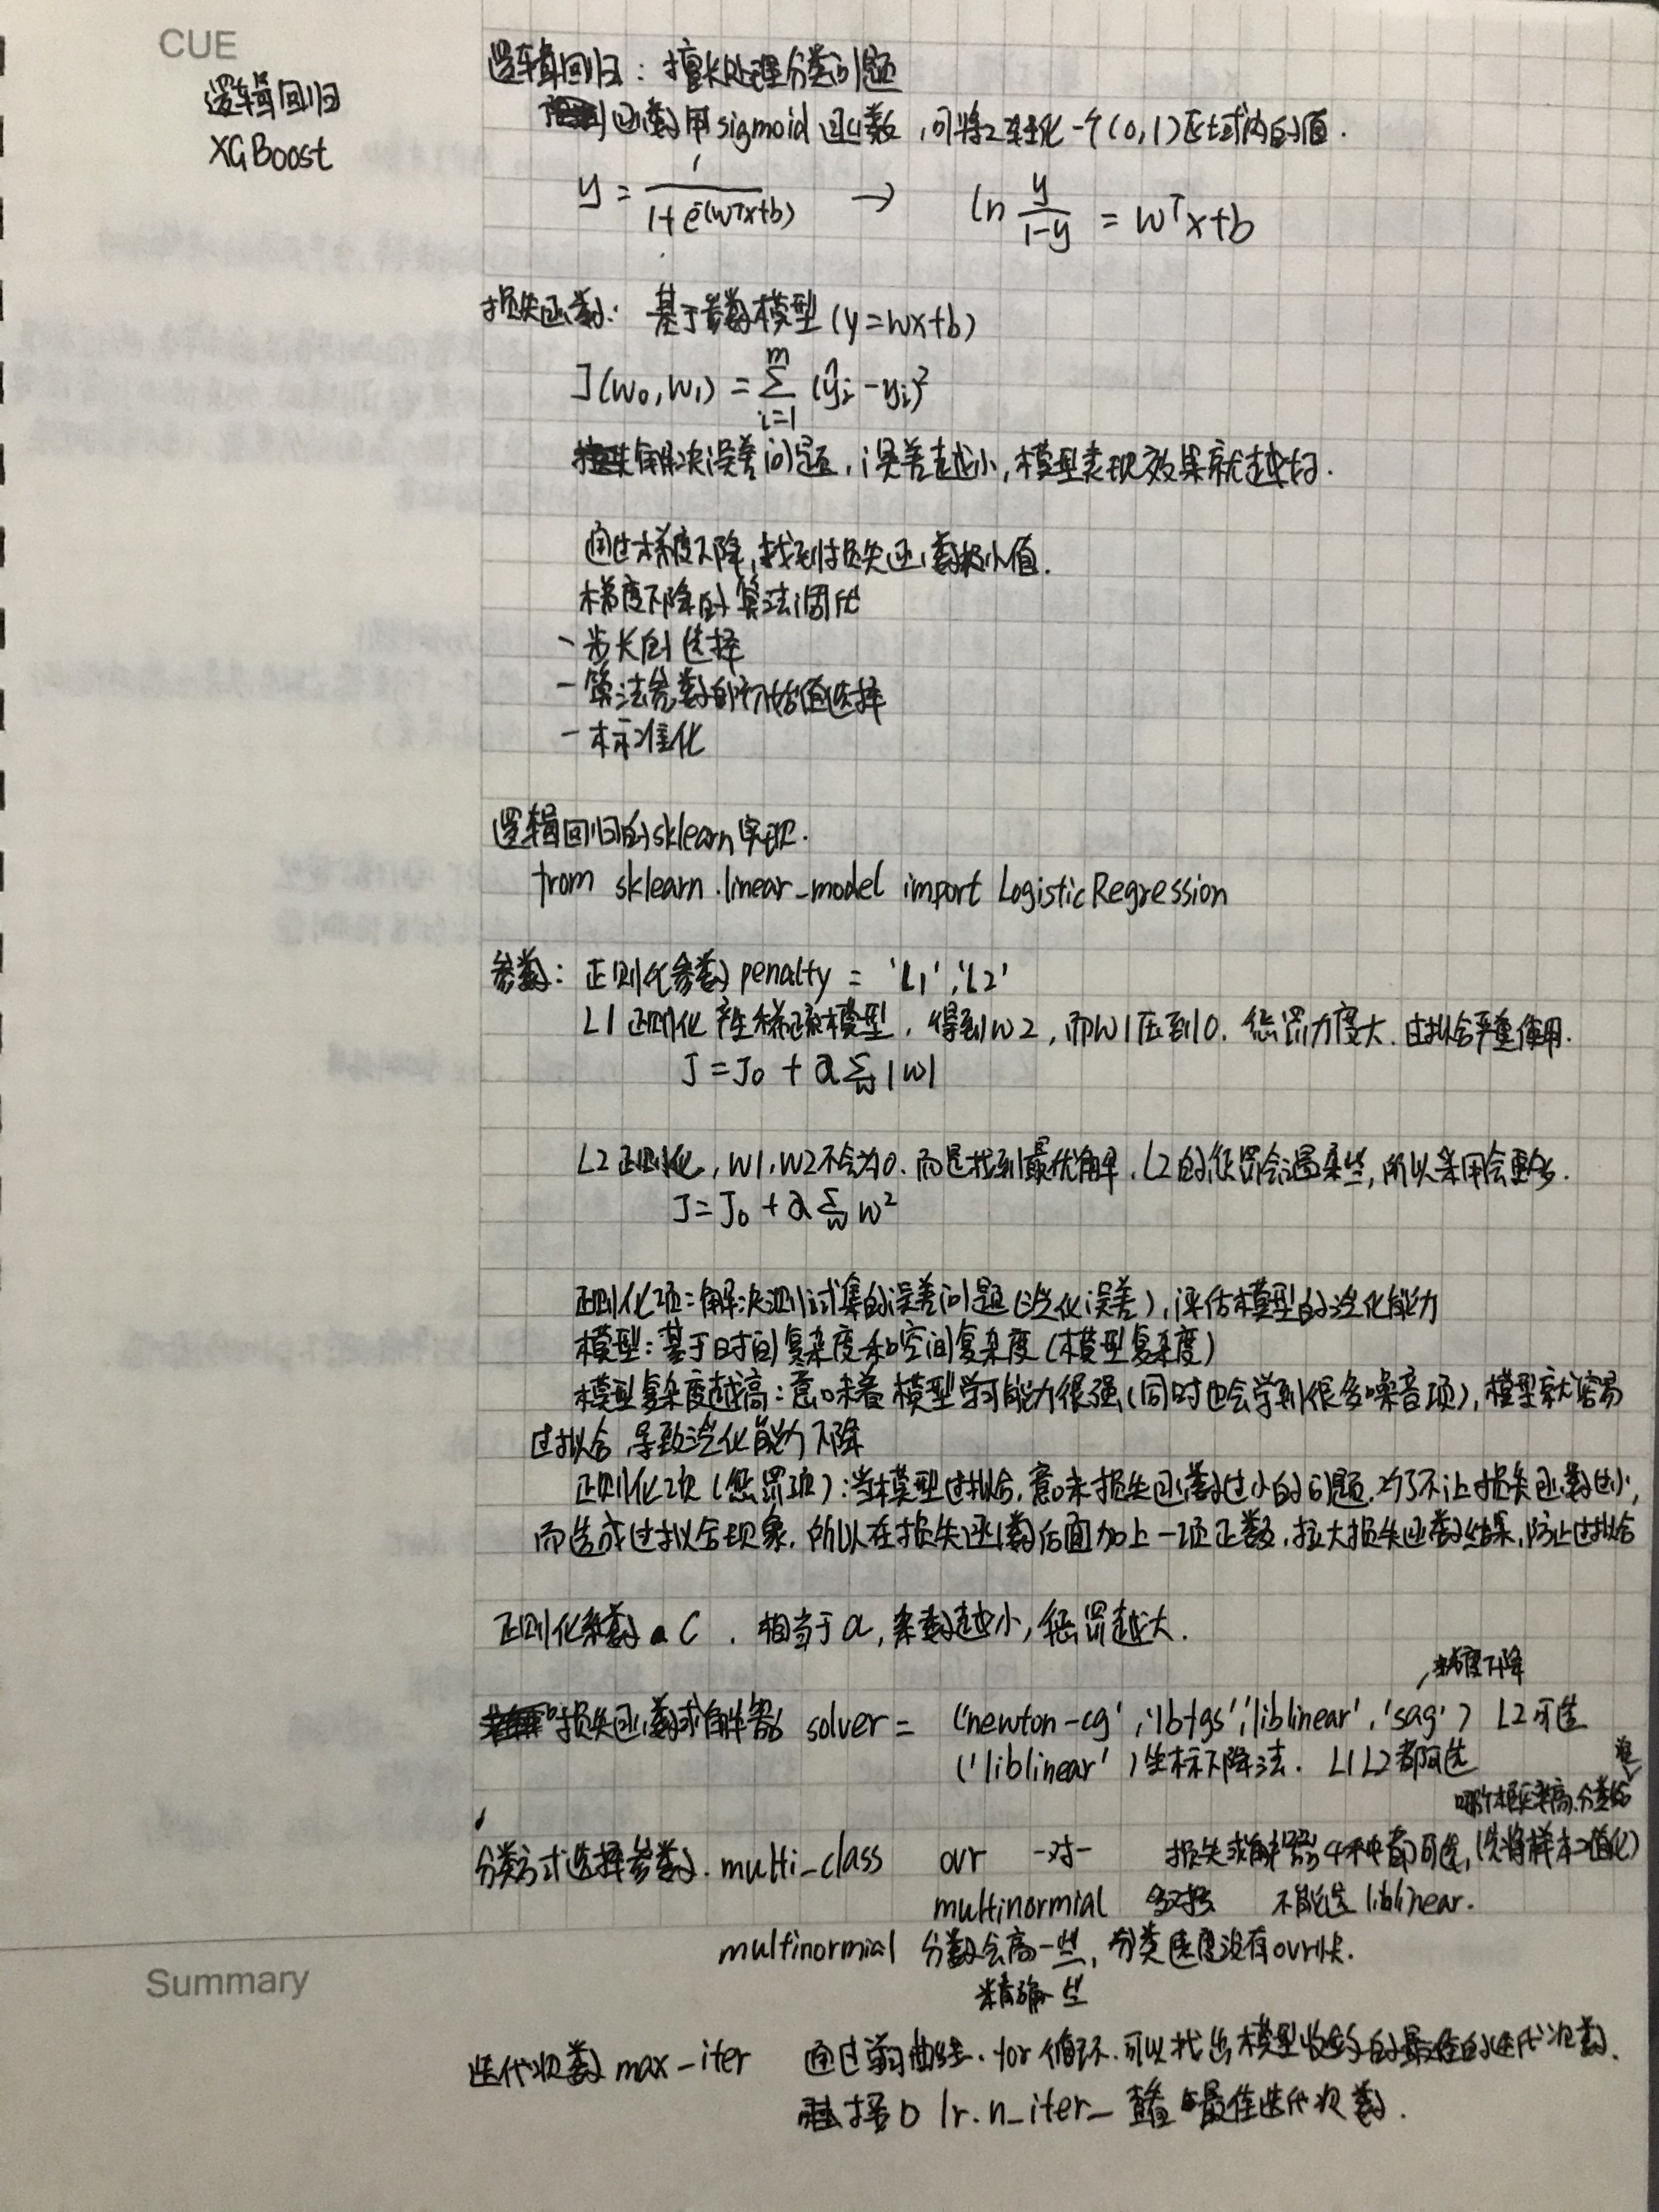 CUE
逻辑回归
XGBoost
逻辑回归：擅长处理分类问题
函数用sigmoid函数，可将z转化一个(0,1)区域内的值.
y = 1/(1+e^-(wᵀx+b)) → ln y/(1-y) = wᵀx+b
损失函数：基于参数模型(y=wx+b)
J(w₀,w₁) = Σ_{i=1}^{m} (ŷi-yi)²
解决误差问题，误差越小，模型表现效果就越好.
通过梯度下降，找到损失函数极小值.
梯度下降的算法调优
- 步长的选择
- 算法参数的初始值选择
- 标准化
逻辑回归的sklearn实现.
from sklearn.linear_model import LogisticRegression
参数：正则化参数 penalty = 'L1','L2'
L1正则化产生稀疏模型，得到w2，而w1压到0. 惩罚力度大. 过拟合严重使用.
J = J₀ + a Σ_w |w|
L2正则化，w1,w2不会为0. 而是找到最优解. L2的惩罚会温柔些，所以采用会更多.
J = J₀ + a Σ_w w²
正则化项：解决测试集的误差问题(泛化误差)，评估模型的泛化能力
模型：基于时间复杂度和空间复杂度(模型复杂度)
模型复杂度越高：意味着模型学习能力很强(同时也会学到很多噪音项)，模型就容易
过拟合，导致泛化能力下降
正则化项(惩罚项)：当模型过拟合，意味损失函数过小的问题，为了不让损失函数过小,
而造成过拟合现象. 所以在损失函数后面加上一项正数，拉大损失函数结果，防止过拟合
正则化系数 C . 相当于a，系数越小，惩罚越大.
梯度下降
损失函数求解器 solver = ('newton-cg','lbfgs','liblinear','sag') L2可选
('liblinear')坐标下降法. L1L2都可选
哪个概率高,分类给
分类方式选择参数. multi_class ovr 一对一 损失求解器4种都可选,(先将样本二值化)
multinormial 多对多 不能选 liblinear.
multinormial 分数会高一些，分类速度没有ovr快.
精确一些
迭代次数 max-iter 通过学习曲线. for循环. 可以找出模型收敛的最佳的迭代次数.
接口 lr.n_iter_ 查看最佳迭代次数.
Summary